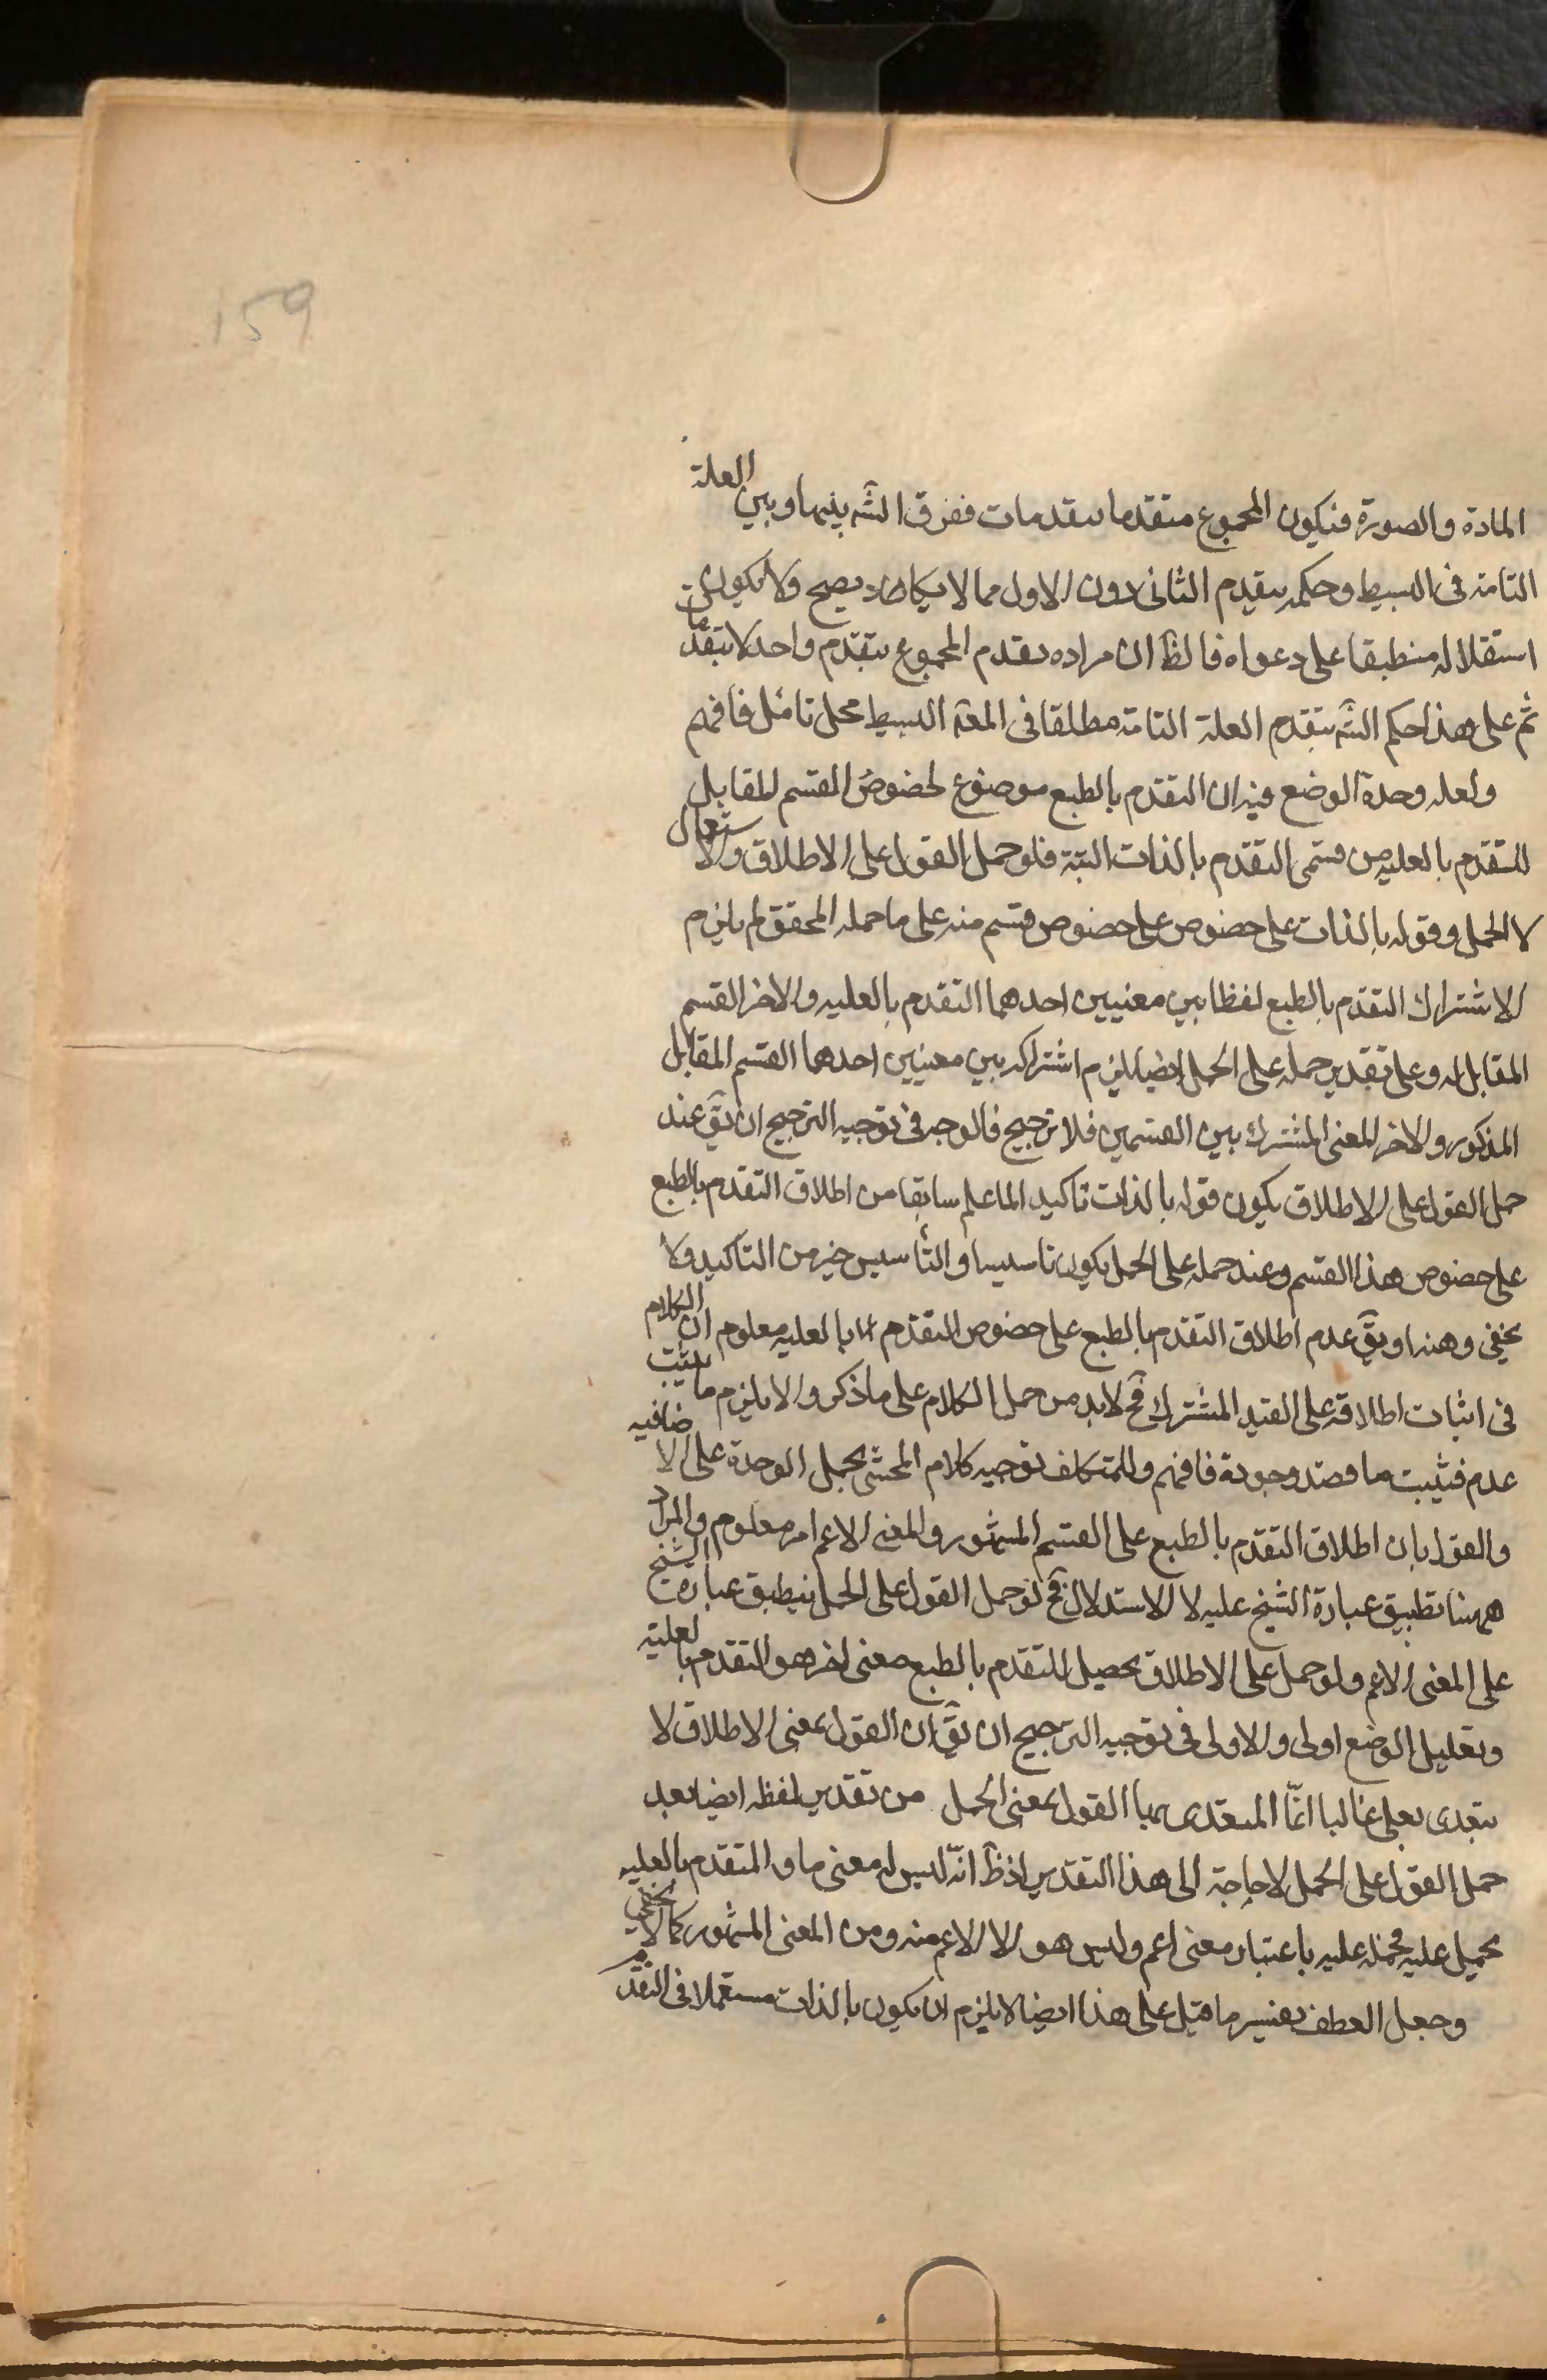 159
المادة والصورة فيكون المجموع متقدما بتقدمات ففرق الشه بينهما وبين العلة
التامة فى البسيط وحكمه بتقدم الثانى دون الاول مما لا يكاد يصح ولا يكون
استقلاله منطبقا على دعواه فالظ ان مراده بتقدم المجموع بتقدم واحد لا بتقدمات
ثم على هذا حكم الشه بتقدم العلة التامة مطلقا فى المعه البسيط محل تامل فافهم
ولعله وحدة الوضع فيه ان التقدم بالطبع موضوع لخصوص القسم المقابل
للتقدم بالعليه من قسمى التقدم بالذات البتة فلو حمل القول على الاطلاق والاستعمال
لا الحمل وقوله بالذات على خصوص على خصوص قسم منه على ما حمله المحقق لم يلزم
الا اشتراك التقدم بالطبع لفظا بين معنيين احدهما التقدم بالعليه والاخر القسم
المقابل له وعلى تقدير حمله على الحمل ايضا يلزم اشتراكه بين معنيين احدهما القسم المقابل
المذكور والاخر المعنى المشترك بين القسمين فلا ترجيح فالوجه فى توجيه الترجيح ان يق عند
حمل القول على الاطلاق يكون قوله بالذات تاكيدا لما علم سابقا من اطلاق التقدم بالطبع
على خصوص هذا القسم وعند حمله على الحمل يكون تاسيسا والتأسيس خير من التاكيد ولا
يخفى وهنه او يق عدم اطلاق التقدم بالطبع على خصوص التقدم بالعليه معلوم ان الكلام
فى اثبات اطلاقه على القيد المشترك فح لابد من حمل الكلام على ما ذكر والا يلزم ما يثبت
عدم فيثبت ما قصد وجوده فافهم وللمتكلف توجيه كلام المحشى بحمل الوحدة على الاضافيه
والقول بان اطلاق التقدم بالطبع على القسم المشهور والمعنى الاعم امر معلوم والمراد
ههنا تطبيق عبارة الشيخ عليه لا الاستدلال فح لو حمل القول على الحمل ينطبق عبارة الشيخ
على المعنى الاعم ولو حمل على الاطلاق يحصل للتقدم بالطبع معنى اخر هو التقدم بالعليته
وتقليل الوضع اولى والاولى فى توجيه الترجيح ان يق ان القول بمعنى الاطلاق لا
يتعدى بعلى غالبا انما المتعدى بها القول بمعنى الحمل من تقدير لفظه ايضا بعد
حمل القول على الحمل لا حاجة الى هذا التقدير اذ ظ انه ليس له معنى ما والمتقدم بالعليه
يحمل عليه فحمله عليه باعتبار معنى اعم وليس هو الا الاعم منه ومن المعنى المشهور كما لا يخفى
وجعل العطف تفسير ما قيل على هذا ايضا لا يلزم ان يكون بالذات مستعملا فى التقدم